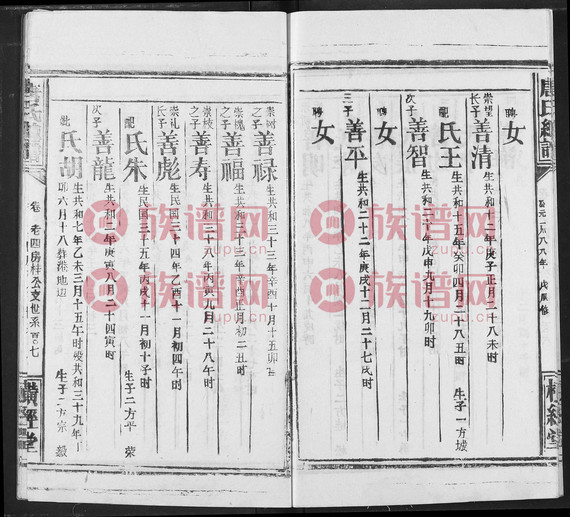 唐氏續譜
公元一九八八年 戊辰修
聘 女
崇望 善清 生共和十二年庚子正月二十八未时
配 氏王 生共和十五年癸卯四月二十八丑时 生子一方城
次子 善智 生共和二十年戊申九月十九卯时
聘 女
三子 善平 生共和二十二年庚戌十二月二十七戌时
聘 女
之子 善禄 生共和三十三年辛酉十月十五卯时
崇槐之子 善福 生共和三十三年辛酉正月初二丑时
崇坡之子 善寿 生共和三十八年丙寅九月二十八午时
崇礼长子 善彪 生民国三十四年乙酉十一月初四午时
配 氏朱 生民国三十五年丙戌十一月初十子时 生子二方平 荣
次子 善龍 生共和二年庚寅八月二十四寅时
配 氏胡 生共和七年乙未三月十五午时 共和三十九年丁卯六月十八 生子二方宗 毅
卷 老四房桂公支世系 百〇七
族谱网
zupu.cn
族谱网
zupu.cn